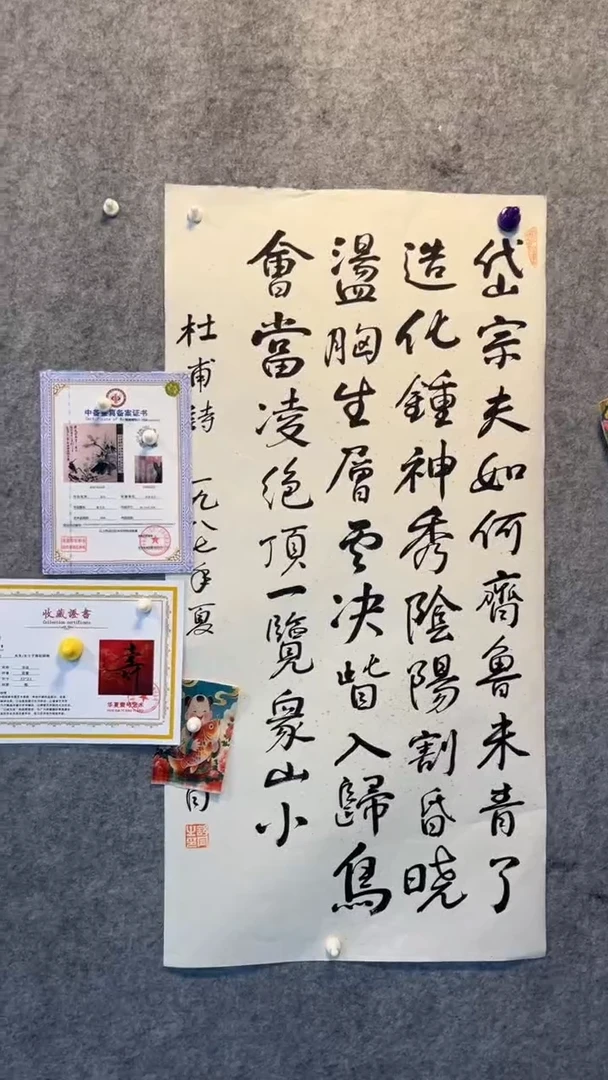 岱宗夫如何齊魯未青了
造化鍾神秀陰陽割昏晓
盪胸生層云决眥入歸鳥
會當凌絶頂一覽衆山小
杜甫詩 一九八七年夏
备案证书
收藏證書
Collection certificate